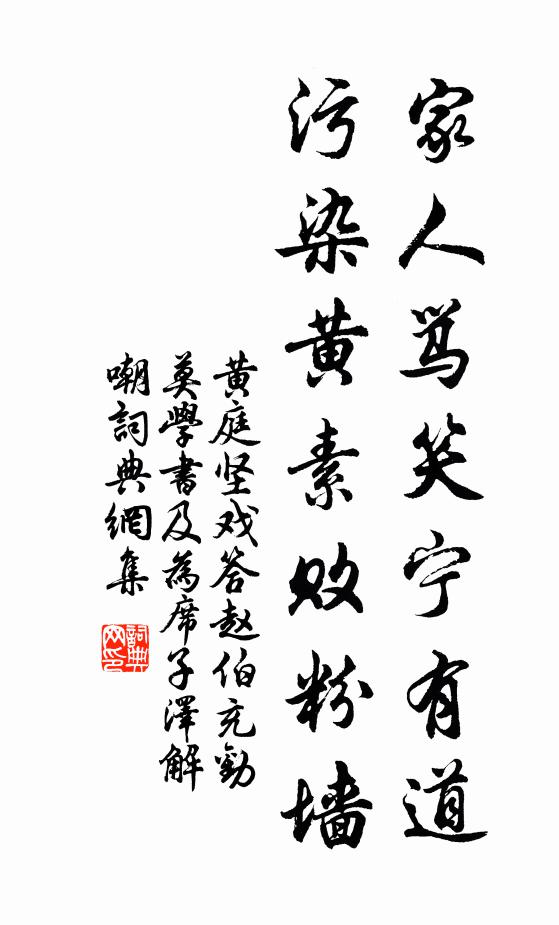 家人骂笑宁有道
污染黄素败粉墙
黄庭坚戏答赵伯充勸
莫學書及為席子澤解
嘲詞典網集
詞典网印